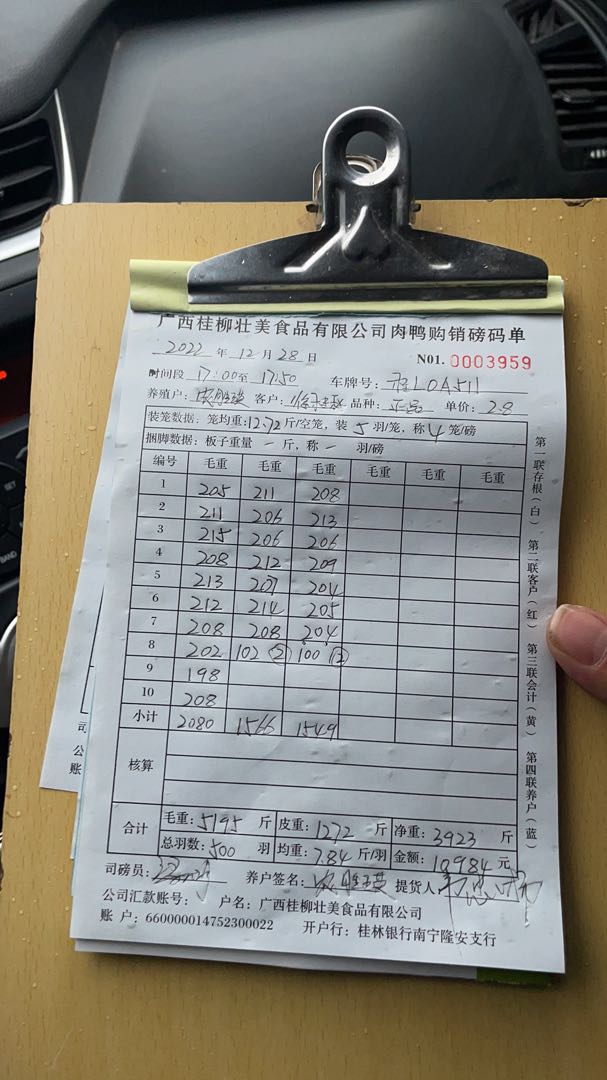 广西桂柳壮美食品有限公司肉鸭购销磅码单
2022 年 12 月 28 日 N01. 0003959
时间段 17:00至 17:50 车牌号: 桂L0A511
养殖户: 客户: 品种: 正品 单价: 2.8
装笼数据: 笼均重: 12.72 斤/空笼, 装 5 羽/笼, 称 4 笼/磅
捆脚数据: 板子重量 一 斤, 称 一 羽/磅
编号 毛重 毛重 毛重 毛重 毛重 毛重
1 205 211 208
2 211 206 213
3 215 206 206
4 208 212 209
5 213 207 204
6 212 214 205
7 208 208 204
8 202 102 ② 100 ②
9 198
10 208
小计 2080 1566 1549
核算
合计 毛重: 5195 斤 皮重: 1272 斤 净重: 3923 斤
总羽数: 500 羽 均重: 7.84 斤/羽 金额: 10984 元
司磅员: 养户签名: 提货人
公司汇款账号: 户名: 广西桂柳壮美食品有限公司
账 户: 660000014752300022 开户行: 桂林银行南宁隆安支行
第一联存根(白) 第二联客户(红) 第三联会计(黄) 第四联养户(蓝)
司
公
账